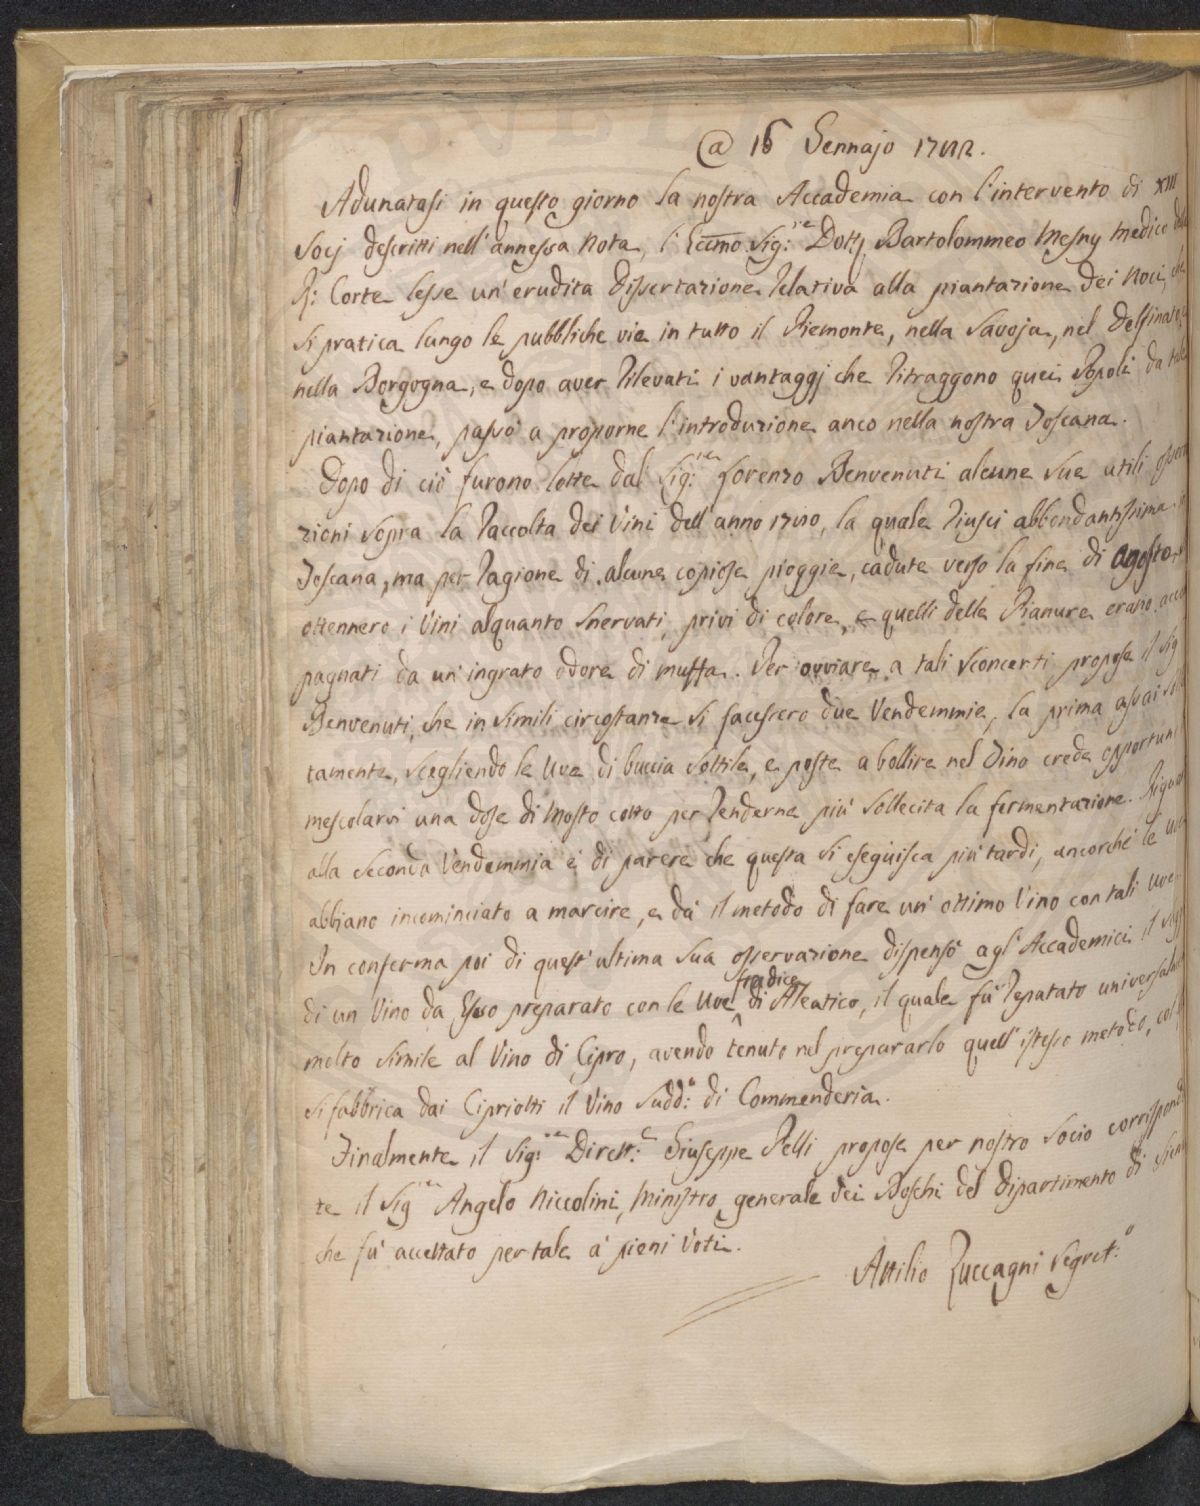 @ 16 Gennajo 1782.
Adunatasi in questo giorno la nostra Accademia con l'intervento di XIII
Socj descritti nell'annessa nota, l'Eccmo Sig:re Dottj Bartolommeo Mesny Medico della
R: Corte lesse un'erudita Dissertazione relativa alla piantazione dei Noci, che
si pratica lungo le pubbliche vie in tutto il Piemonte, nella Savoja, nel Delfinato, e
nella Borgogna, e dopo aver rilevati i vantaggj che ritraggono quei Popoli da tale
piantazione, passò a proporne l'introduzione anco nella nostra Toscana.
Dopo di ciò furono lette dal Sig:re Lorenzo Benvenuti alcune sue utili osserva
zioni sopra la raccolta dei Vini dell'anno 1780, la quale riuscì abbondantissima in
Toscana, ma per ragione di alcune copiose pioggie, cadute verso la fine di Agosto, si
ottennero i Vini alquanto snervati, privi di colore, e quelli delle Pianure erano accom
pagnati da un'ingrato odore di muffa. Per ovviare a tali sconcerti propose il Sig
Benvenuti, che in simili circostanze si facessero due Vendemmie, la prima assai solle
tamente, scegliendo le Uve di buccia sottile, e poste a bollire nel Tino crede opportuno
mescolarvi una dose di Mosto cotto per renderne più sollecita la fermentazione. Riguardo
alla seconda Vendemmia è di parere che questa si eseguisca più tardi, ancorchè le uve
abbiano incominciato a marcire, e dà il metodo di fare un'ottimo Vino con tali Uve.
In conferma poi di quest'ultima sua osservazione dispensò agl'Accademici il saggio
di un Vino da Esso preparato con le Uve fradice di Aleatico, il quale fù reputato universalmente
molto simile al Vino di Cipro, avendo tenuto nel prepararlo quell'istesso metodo, col
si fabbrica dai Cipriotti il Vino Sudd:o di Commenderia.
Finalmente il Sig:re Dirett:e Giuseppe Pelli propose per nostro Socio corrisponden
te il Sig:re Angelo Niccolini, Ministro generale dei Boschi del Dipartimento di Siena
che fù accettato per tale a pieni Voti.
Attilio Zuccagni Segret:o